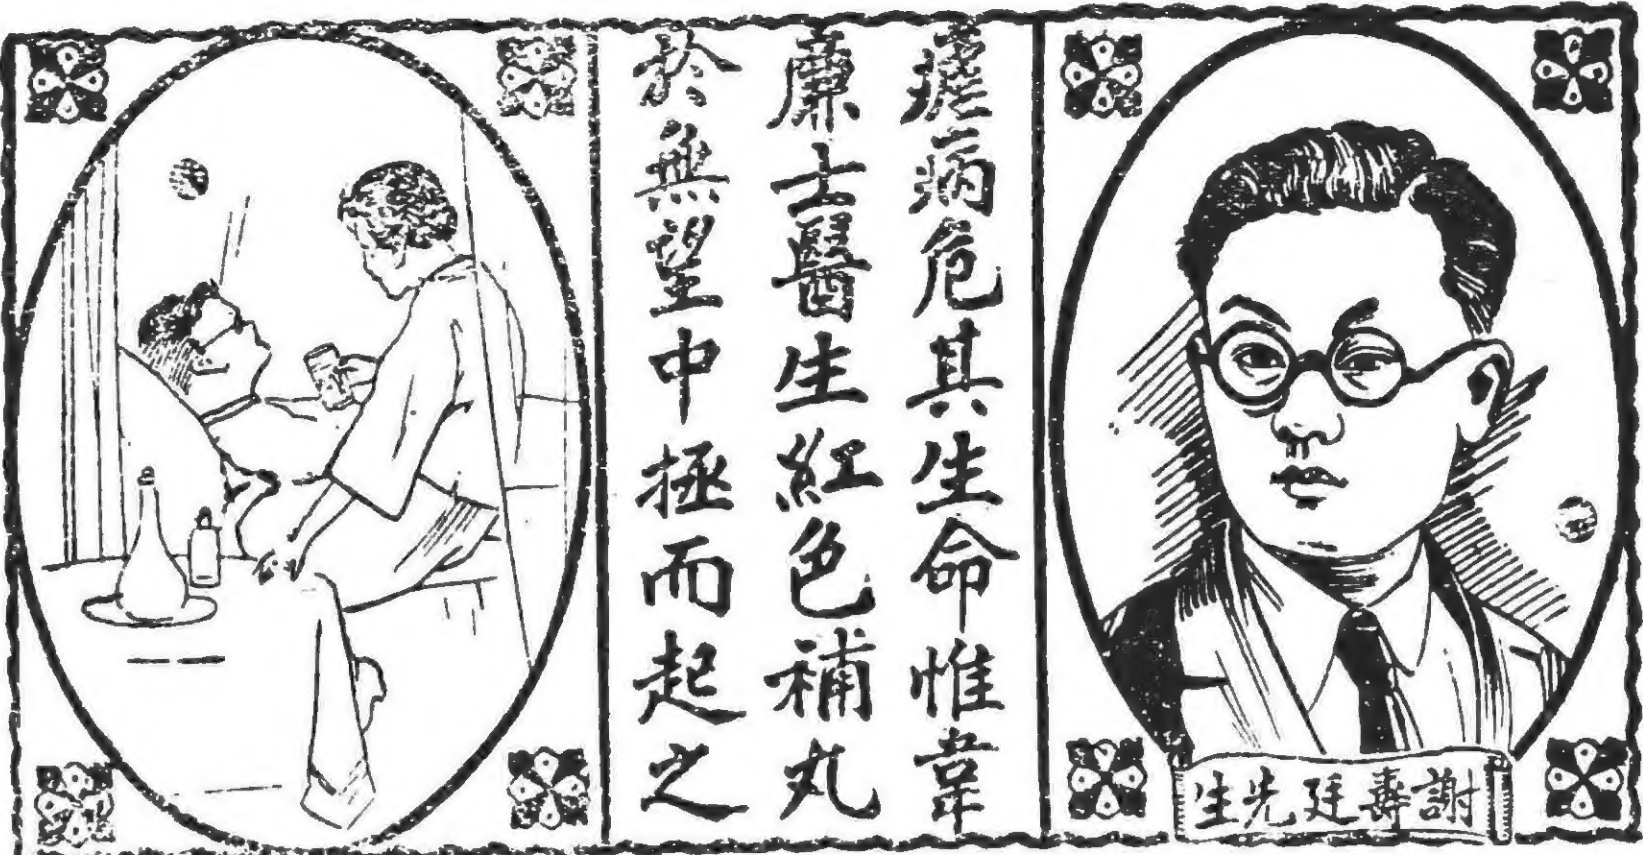 瘧病危其生命惟韋
廉士醫生紅色補丸
於無望中拯而起之
謝壽廷先生